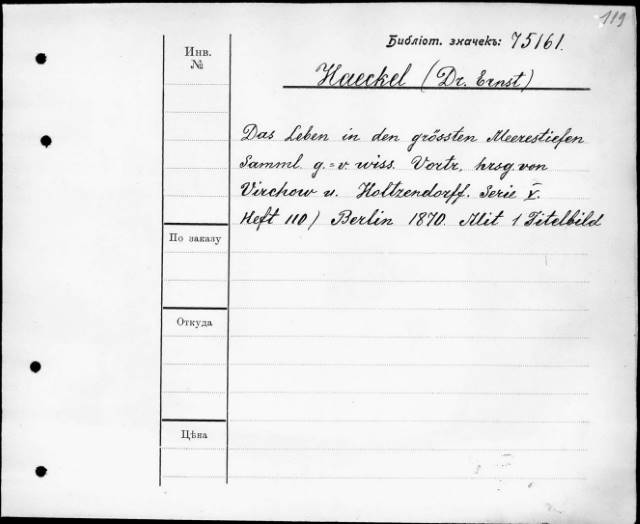 119
Библіот. значекъ: 75161.
Инв.
№
Haeckel (Dr. Ernst)
Das Leben in den grössten Meerestiefen
Samml. g.=v. wiss. Vortr. hrsg. von
Virchow u. Holtzendorff. Serie V.
Heft 110) Berlin 1870. Mit 1 Titelbild
По заказу
Откуда
Цѣна